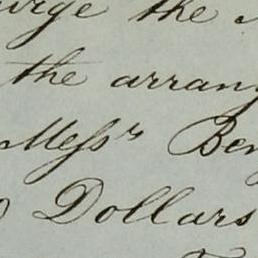 the
the arrang
Messrs Ben
Dollars